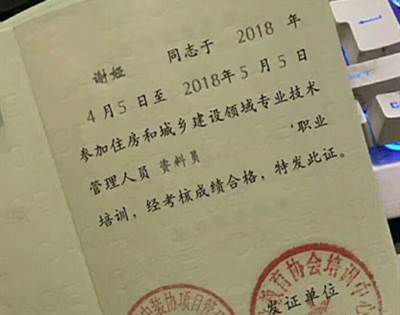 谢娅 同志于 2018 年
4月5日至 2018年5月5日
参加住房和城乡建设领域专业技术
管理人员 资料员 职业
培训，经考核成绩合格，特发此证。
发证单位
教育协会培训中心